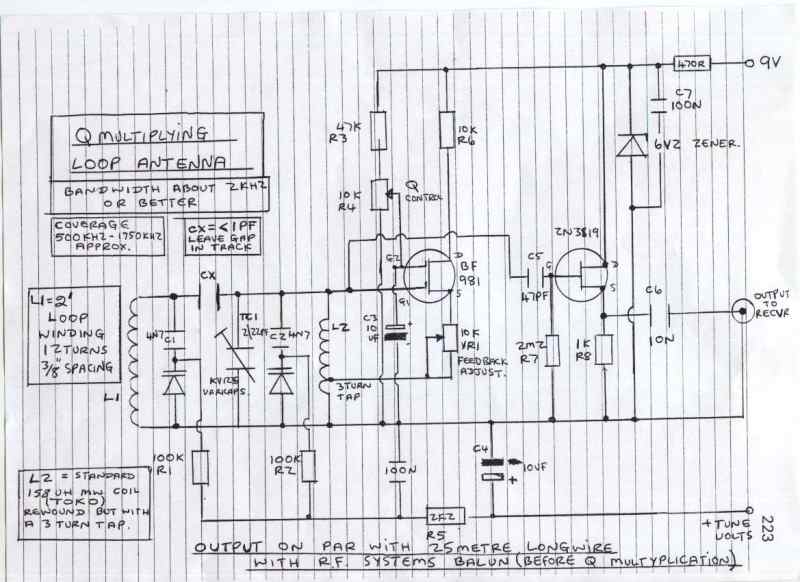 Q MULTIPLYING
LOOP ANTENNA
BANDWIDTH ABOUT 2KHZ
OR BETTER
COVERAGE
500KHZ - 1750KHZ
APPROX.
CX = <1PF
LEAVE GAP
IN TRACK
L1=2'
LOOP
WINDING
12 TURNS
3/8" SPACING
L1
4N7
C1
KV1235
VARKAPS.
CX
TC1
2/22PF
C2
4N7
L2
3 TURN
TAP
47K
R3
10K
R4
Q
CONTROL
10K
R6
G2
G1
D
BF
981
S
C3
10
UF
+
-
10K
VR1
FEEDBACK
ADJUST.
C5
47PF
G
2N3819
D
S
2M2
R7
1K
R8
C6
10N
OUTPUT
TO
RECVR
470R
9V
C7
100N
6V2 ZENER.
100K
R1
100K
R2
100N
C4
10UF
+
2K2
R5
+TUNE
VOLTS
L2 = STANDARD
158UH MW COIL
(TOKO)
REWOUND BUT WITH
A 3 TURN TAP.
OUTPUT ON PAR WITH 25METRE LONGWIRE
WITH R.F. SYSTEMS BALUN (BEFORE Q MULTYPLICATION)
223